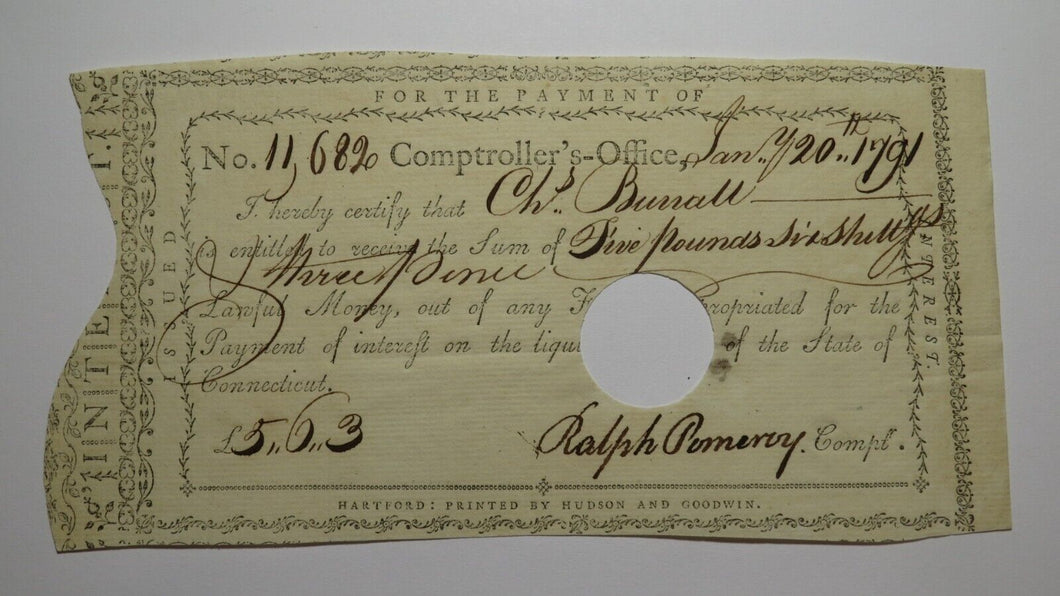 FOR THE PAYMENT OF
No. 11,682 Comptroller's-Office, Jany 20th 1791
I hereby certify that Chs Burrall
is entitled to receive the Sum of Five pounds six Shillgs
three pence
Lawful Money, out of any F ropriated for the
Payment of interest on the liqui of the State of
Connecticut.
£5,,6,,3 Ralph Pomeroy. Compt.
HARTFORD: PRINTED BY HUDSON AND GOODWIN.
ISSUED
INTEREST.